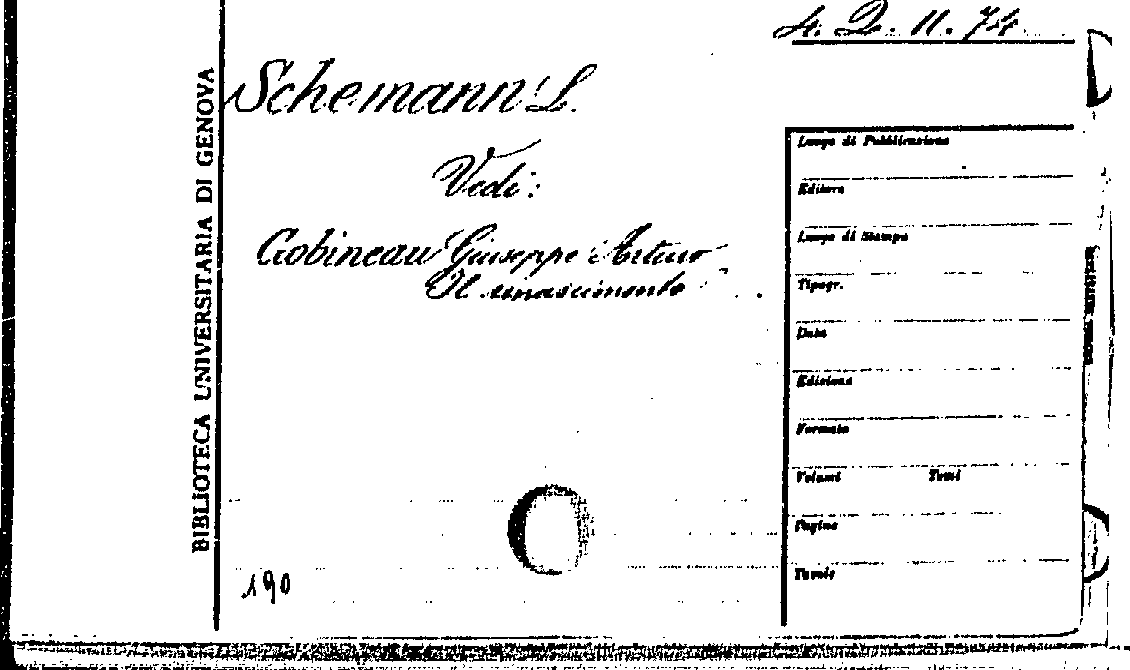 4. Q. 11. 74
BIBLIOTECA UNIVERSITARIA DI GENOVA
Schemann L.
Vedi:
Gobineau Giuseppe Arturo
Il rinascimento
190
Luogo di Pubblicazione
Editore
Luogo di Stampa
Tipogr.
Data
Edizione
Formato
Volumi Tomi
Pagine
Tavole